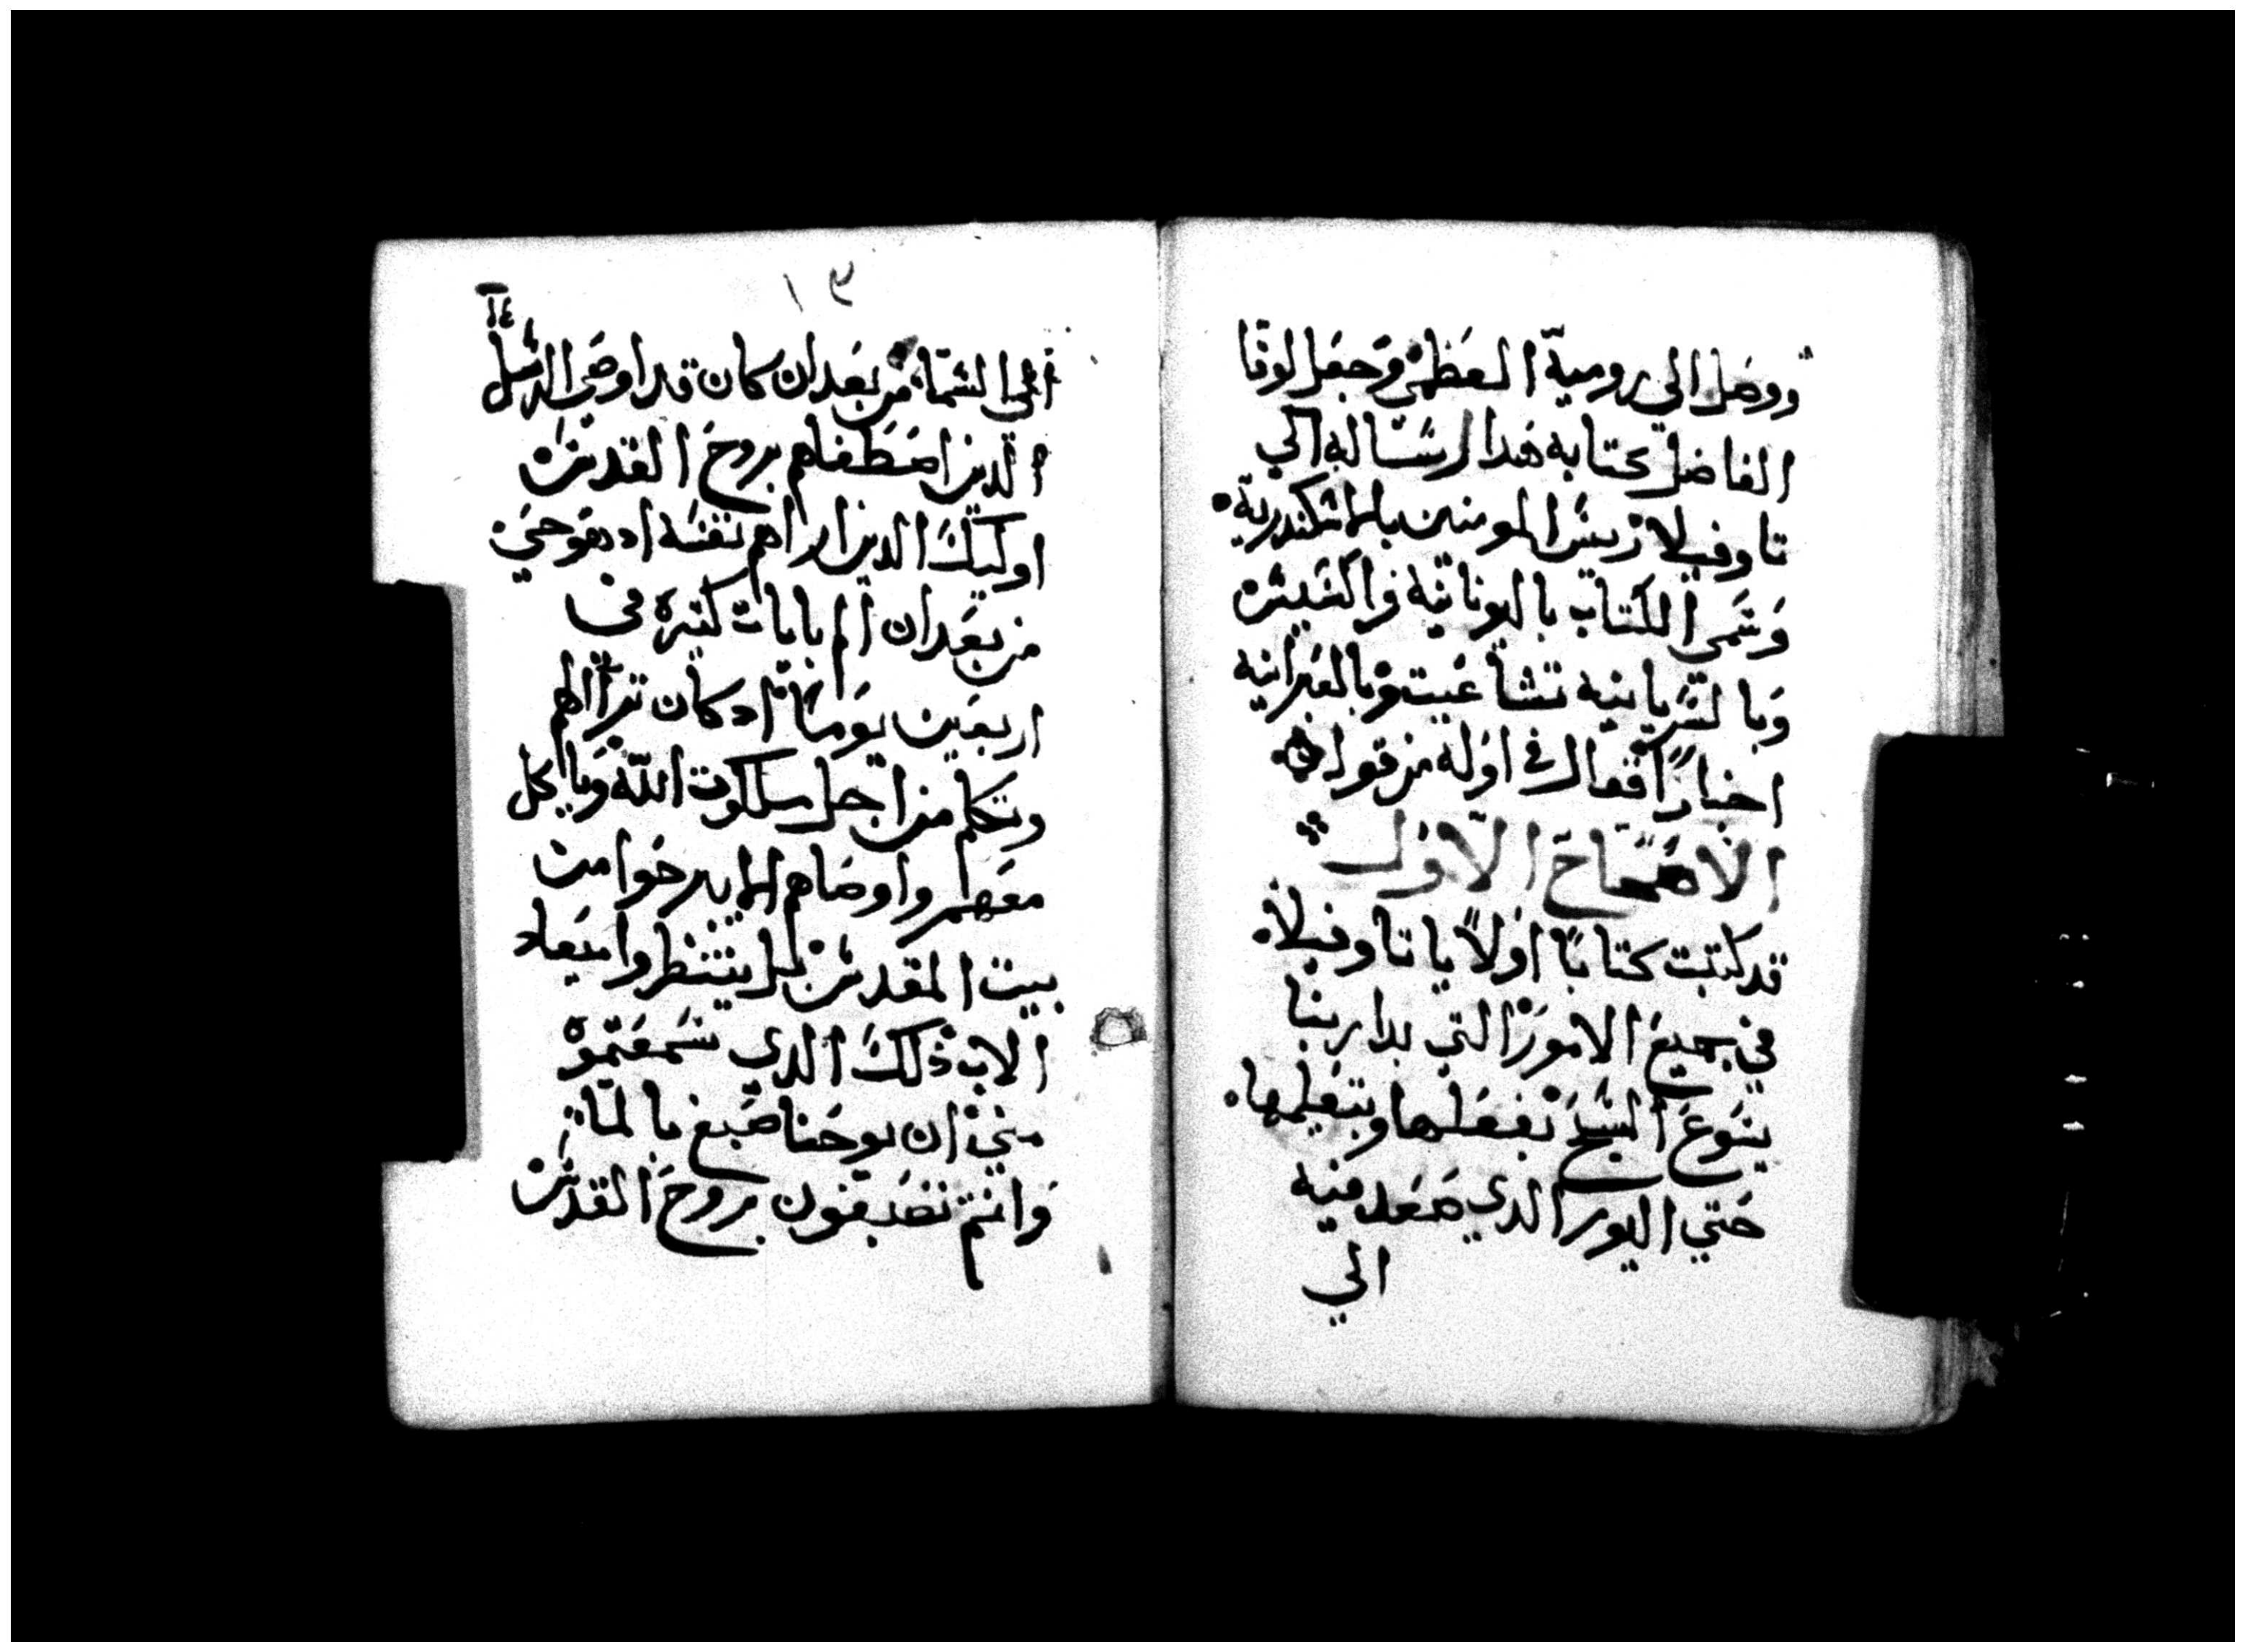 ووصل الي رومية العظمي وجعل لوقا
الفاضل كتابه هدا رسالة الي
تاوفيلا ريس المومنين بالاسكندرية
وسمي الكتاب باليونانية فراكسيس
وبالسريانية تشاعيت وبالعبرانية
اخبارًا فقال في اوله من قوله
الاصحاح الاول
قد كتبت كتابًا اولاً يا تاوفيلا
في جميع الامور التي بدا ربنا
يسوع المسيح بفعلها وبتعلمها
حتي اليوم الدي صعد فيه
الي
١٣
١٤
الي السما من بعد ان كان قد اوصي الرسل
الدين اصطفاهم بروح القدس
اوليك الدين اراهم نفسه اد هو حي
من بعد ان الم بايات كتيره في
اربعين يومًا اد كان تيراا لهم
وتكلم من اجل ملكوت الله وياكل
معهم واوصاهم الا يبرحوا من
بيت المقدس بل ينتظروا ميعاد
الاب ذلك الدي سمعتموه
مني ان يوحنا صبغ بالما
وانتم تصبغون بروح القدس